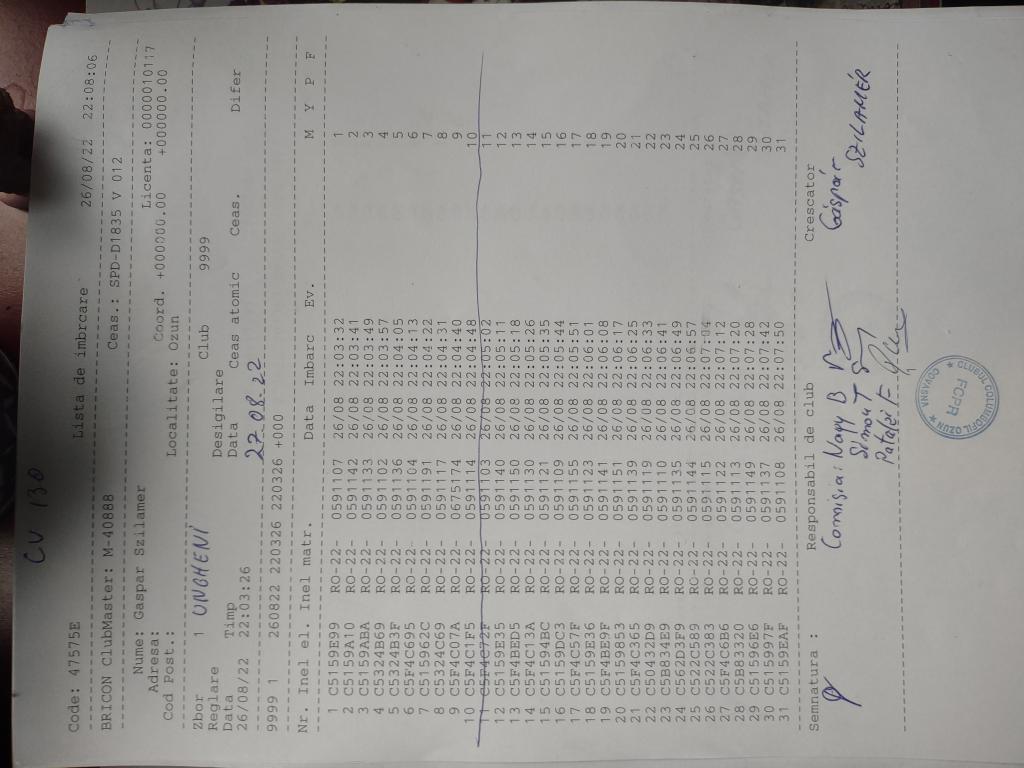 CV 130
Code: 47575E Lista de imbrcare 26/08/22 22:08:06
BRICON ClubMaster: M-40888 Ceas.: SPD-D1835 V 012
Nume: Gaspar Szilamer Licenta: 0000010117
Adresa: Coord. +000000.00 +000000.00
Cod Post.: Localitate: Ozun
Zbor 1 UNGHENI Club 9999
Reglare Desigilare
Data Timp Data Ceas atomic Ceas. Difer
26/08/22 22:03:26 27.08.22
9999 1 260822 220326 220326 +000
Nr. Inel el. Inel matr. Data Imbarc Ev. M Y P F
1 C5159E99 RO-22- 0591107 26/08 22:03:32 1
2 C5159A10 RO-22- 0591142 26/08 22:03:41 2
3 C5159ABA RO-22- 0591133 26/08 22:03:49 3
4 C5324B69 RO-22- 0591102 26/08 22:03:57 4
5 C5324B3F RO-22- 0591136 26/08 22:04:05 5
6 C5F4C695 RO-22- 0591104 26/08 22:04:13 6
7 C515962C RO-22- 0591191 26/08 22:04:22 7
8 C5324C69 RO-22- 0591117 26/08 22:04:31 8
9 C5F4C07A RO-22- 0675174 26/08 22:04:40 9
10 C5F4C1F5 RO-22- 0591114 26/08 22:04:48 10
11 C5F4C72F RO-22- 0591103 26/08 22:05:02 11
12 C5159E35 RO-22- 0591140 26/08 22:05:11 12
13 C5F4BED5 RO-22- 0591150 26/08 22:05:18 13
14 C5F4C13A RO-22- 0591130 26/08 22:05:26 14
15 C51594BC RO-22- 0591121 26/08 22:05:35 15
16 C5159DC3 RO-22- 0591109 26/08 22:05:44 16
17 C5F4C57F RO-22- 0591155 26/08 22:05:51 17
18 C5159E36 RO-22- 0591123 26/08 22:06:01 18
19 C5F4BE9F RO-22- 0591141 26/08 22:06:08 19
20 C5159853 RO-22- 0591151 26/08 22:06:17 20
21 C5F4C365 RO-22- 0591139 26/08 22:06:25 21
22 C50432D9 RO-22- 0591119 26/08 22:06:33 22
23 C5B834E9 RO-22- 0591110 26/08 22:06:41 23
24 C562D3F9 RO-22- 0591135 26/08 22:06:49 24
25 C522C589 RO-22- 0591144 26/08 22:06:57 25
26 C522C383 RO-22- 0591115 26/08 22:07:04 26
27 C5F4C6B6 RO-22- 0591122 26/08 22:07:12 27
28 C5B83320 RO-22- 0591113 26/08 22:07:20 28
29 C51596E6 RO-22- 0591149 26/08 22:07:28 29
30 C515997F RO-22- 0591137 26/08 22:07:42 30
31 C5159EAF RO-22- 0591108 26/08 22:07:50 31
Semnatura : Responsabil de club Crescator
Comisia: Nagy B Gáspár
Simó T SZILAMÉR
Pataki E
CLUBUL COLUMBOFIL OZUN
FCPR
COVASNA